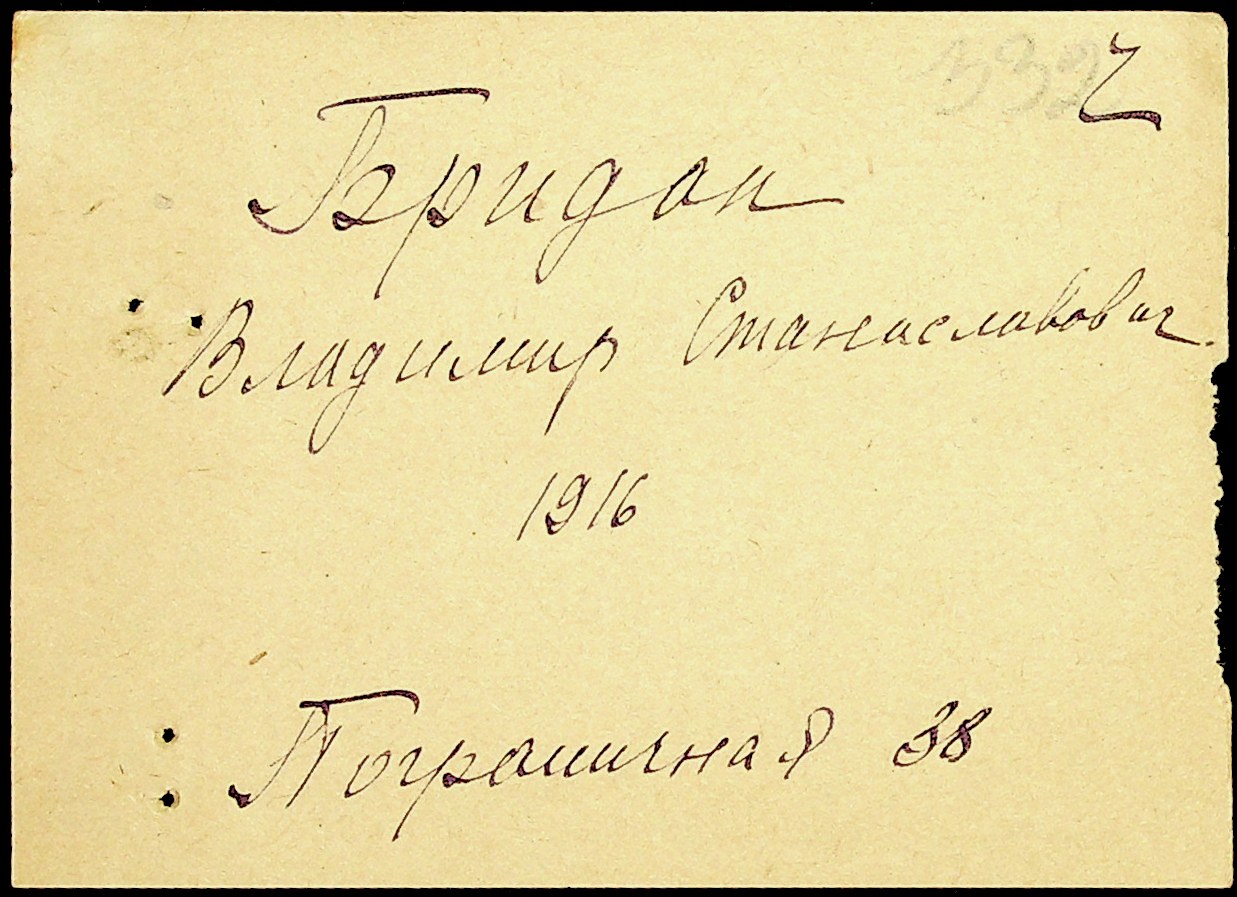 332 ч
Бридон
Владимир Станиславович.
1916
Пограничная 38